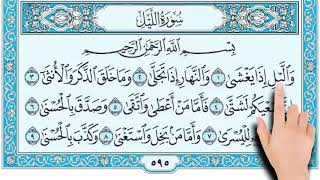 سُورَةُ اللَّيْلِ
بِسْمِ اللَّهِ الرَّحْمَنِ الرَّحِيمِ
وَاللَّيْلِ إِذَا يَغْشَىٰ ١ وَالنَّهَارِ إِذَا تَجَلَّىٰ ٢ وَمَا خَلَقَ الذَّكَرَ وَالْأُنثَىٰ ٣
سَعْيَكُمْ لَشَتَّىٰ ٤ فَأَمَّا مَنْ أَعْطَىٰ وَاتَّقَىٰ ٥ وَصَدَّقَ بِالْحُسْنَىٰ ٦
لِلْيُسْرَىٰ ٧ وَأَمَّا مَن بَخِلَ وَاسْتَغْنَىٰ ٨ وَكَذَّبَ بِالْحُسْنَىٰ ٩
٥٩٥